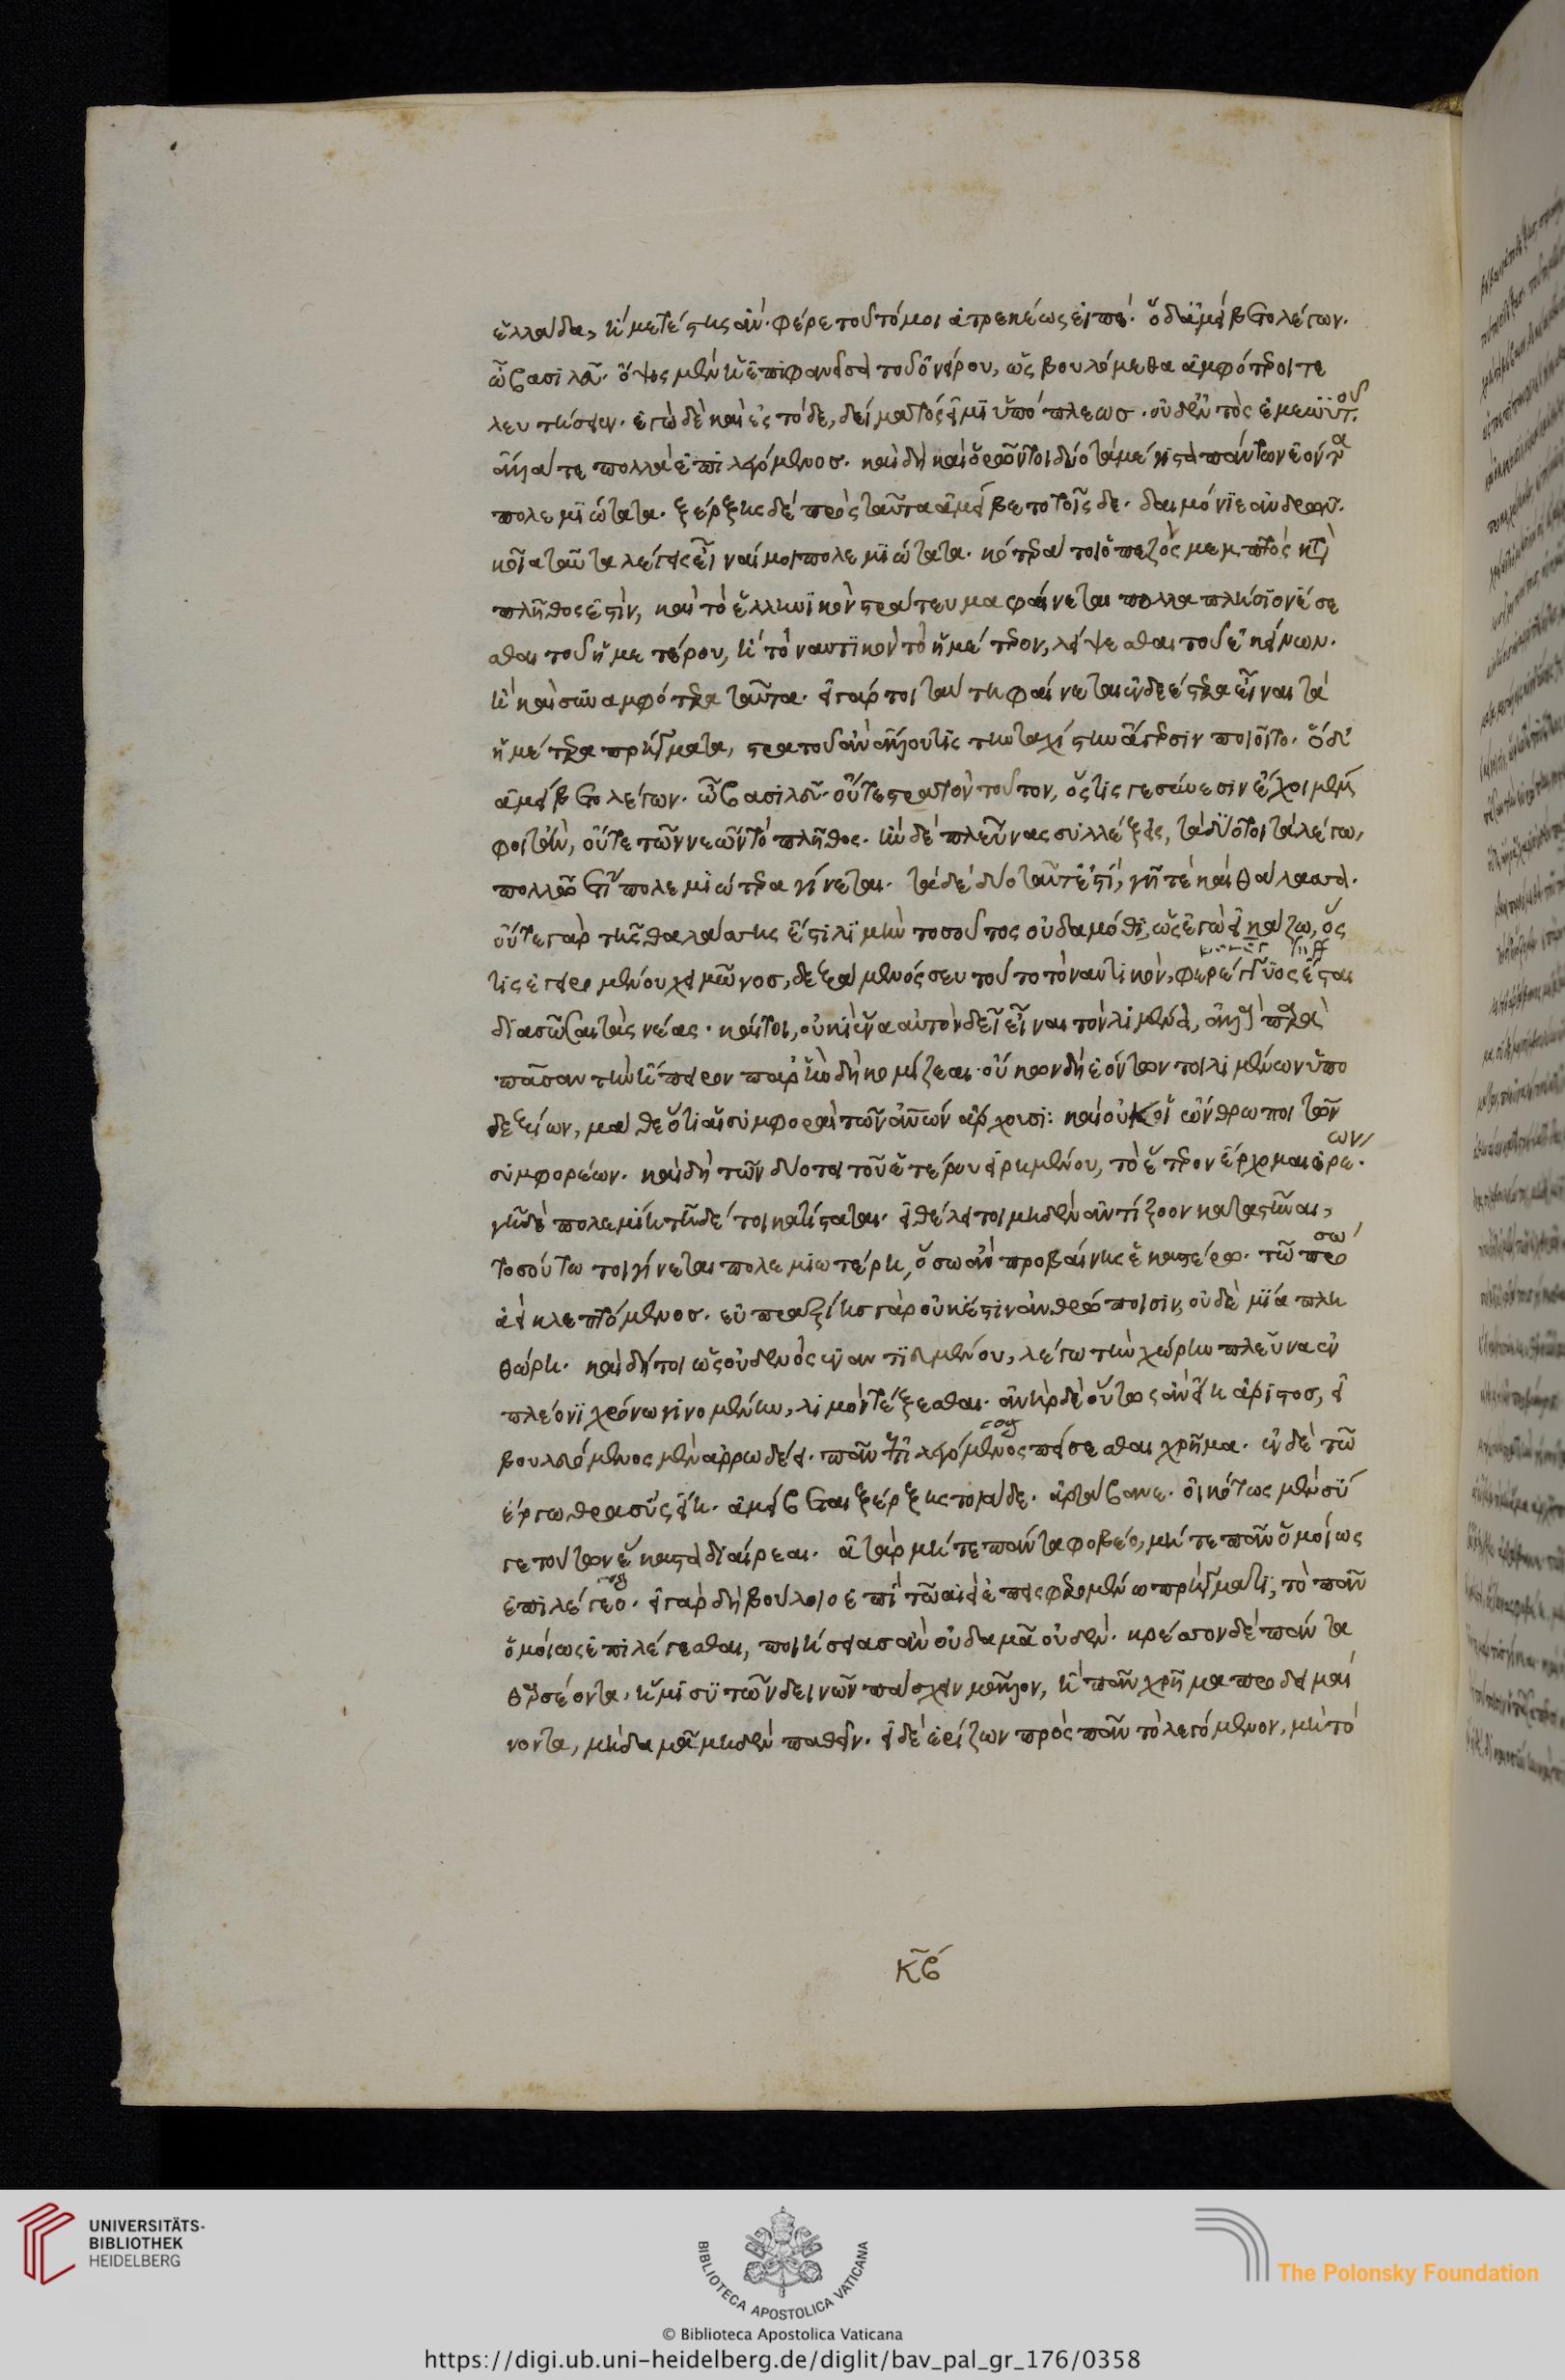 ἑλλάδα, ἢ μετέστης ἄν. φέρε τοῦτό μοι ἀτρεκέως εἰπέ. ὁ δ' ἀμείβετο λέγων.
ὦ βασιλεῦ. ὄψις μὲν ἡ ἐπιφανεῖσα τοῦ ὀνείρου, ὡς βουλόμεθα ἀμφότεροι τε
λευτήσειεν. ἐγὼ δὲ καὶ ἐς τόδε, δείματός εἰμι ὑπόπλεως. οὐδ' ἐντὸς ἐμεωϋτοῦ.
ἄλλα τε πολλὰ ἐπιλεγόμενος. καὶ δὴ καὶ ὁρῶν τοι δύο τὰ μέγιστα πάντων ἐόντα
πολεμιώτατα. ξέρξης δὲ πρὸς ταῦτα ἀμείβετο τοῖσδε. δαιμόνιε ἀνδρῶν.
κοῖα ταῦτα λέγεις εἶναί μοι πολεμιώτατα. κότερά τοι ὁ πεζὸς μεμπτὸς κατὰ
πλῆθός ἐστιν, καὶ τὸ ἑλληνικὸν στράτευμα φαίνεται πολλαπλήσιον ἔσε
σθαι τοῦ ἡμετέρου, ἢ τὸ ναυτικὸν τὸ ἡμέτερον, λείψεσθαι τοῦ ἐκείνων.
ἢ καὶ συναμφότερα ταῦτα. εἰ γάρ τοι ταύτῃ φαίνεται ἐνδεέστερα εἶναι τὰ
ἡμέτερα πρήγματα, στρατοῦ ἂν ἄλλου τις τὴν ταχίστην ἄγερσιν ποιοῖτο. ὁ δ'
ἀμείβετο λέγων. ὦ βασιλεῦ. οὔτε στρατὸν τοῦτον, ὅστις γε σύνεσιν ἔχοι μέμ
φοιτ' ἂν, οὔτε τῶν νεῶν τὸ πλῆθος. ἢν δὲ πλεῦνας συλλέξῃς, τὰ δύο τοι τὰ λέγω,
πολλῷ ἔτι πολεμιώτερα γίνεται. τὰ δὲ δύο ταῦτ' ἐστί, γῆ τε καὶ θάλασσα.
οὔτε γὰρ τῆς θαλάσσης ἔστι λιμὴν τοσοῦτος οὐδαμόθι, ὡς ἐγὼ εἰκάζω, ὅς
τις ἐγειρομένου χειμῶνος, δεξάμενός σευ τοῦτο τὸ ναυτικὸν, φερέγγυος ἔσται
διασῶσαι τὰς νέας. καίτοι, οὐκὶ ἕνα αὐτὸν δεῖ εἶναι τὸν λιμένα, ἀλλὰ παρὰ
πᾶσαν τὴν ἤπειρον παρ' ἣν δὴ κομίζεαι. οὐκ ὦν δὴ ἐόντων τοι λιμένων ὑπο
δεξίων, μάθε ὅτι αἱ συμφοραὶ τῶν ἀνθρώπων ἄρχουσι: καὶ οὐκ οἱ ὤνθρωποι τῶν
συμφορέων. καὶ δὴ τῶν δύο τοι τοῦ ἑτέρου εἰρημένου, τὸ ἕτερον ἔρχομαι ἐρέων.
γῆ δὲ πολεμίη τῇδέ τοι κατίσταται. εἰ θέλει τοι μηδὲν ἀντίξοον καταστῆναι,
τοσούτῳ τοι γίνεται πολεμιωτέρη, ὅσῳ ἂν προβαίνῃς ἑκαστέρω. τῷ πρόσω
ἀεὶ κλεπτόμενος. εὐπρηξίης γὰρ οὐκ ἔστιν ἀνθρώποισιν, οὐδὲ μία πλη
θώρη. καὶ δή τοι ὡς οὐδενὸς ἐναντιευμένου, λέγω τὴν χώρην πλεῦνα ἐν
πλέονι χρόνῳ γινομένην, λιμὸν τέξεσθαι. ἀνὴρ δὲ οὕτως ἂν εἴη ἄριστος, εἰ
βουλευόμενος μὲν ἀρρωδέει. πᾶν ἐπιλεγόμενος πείσεσθαι χρῆμα. ἐν δὲ τῷ
ἔργῳ θρασὺς εἴη. ἀμείβεται ξέρξης τοισίδε. ἀρτάβανε. οἰκότως μὲν σύ
γε τούτων ἕκαστα διαίρεαι. ἀτὰρ μήτε πάντα φοβέο, μήτε πᾶν ὁμοίως
ἐπιλέγεο. εἰ γὰρ δὴ βούλοιο ἐπὶ τῷ αἰεὶ ἐπεσφερομένῳ πρήγματι, τὸ πᾶν
ὁμοίως ἐπιλέγεσθαι, ποιήσειας ἂν οὐδαμᾶ οὐδέν. κρέσσον δὲ πάντα
θαρσέοντα, ἥμισυ τῶν δεινῶν πάσχειν μᾶλλον, ἢ πᾶν χρῆμα προδειμαί
νοντα, μηδαμᾶ μηδὲν παθεῖν. εἰ δὲ ἐρίζων πρὸς πᾶν τὸ λεγόμενον, μὴ τὸ
κβ
UNIVERSITÄTS-
BIBLIOTHEK
HEIDELBERG
BIBLIOTECA APOSTOLICA VATICANA
The Polonsky Foundation
© Biblioteca Apostolica Vaticana
https://digi.ub.uni-heidelberg.de/diglit/bav_pal_gr_176/0358